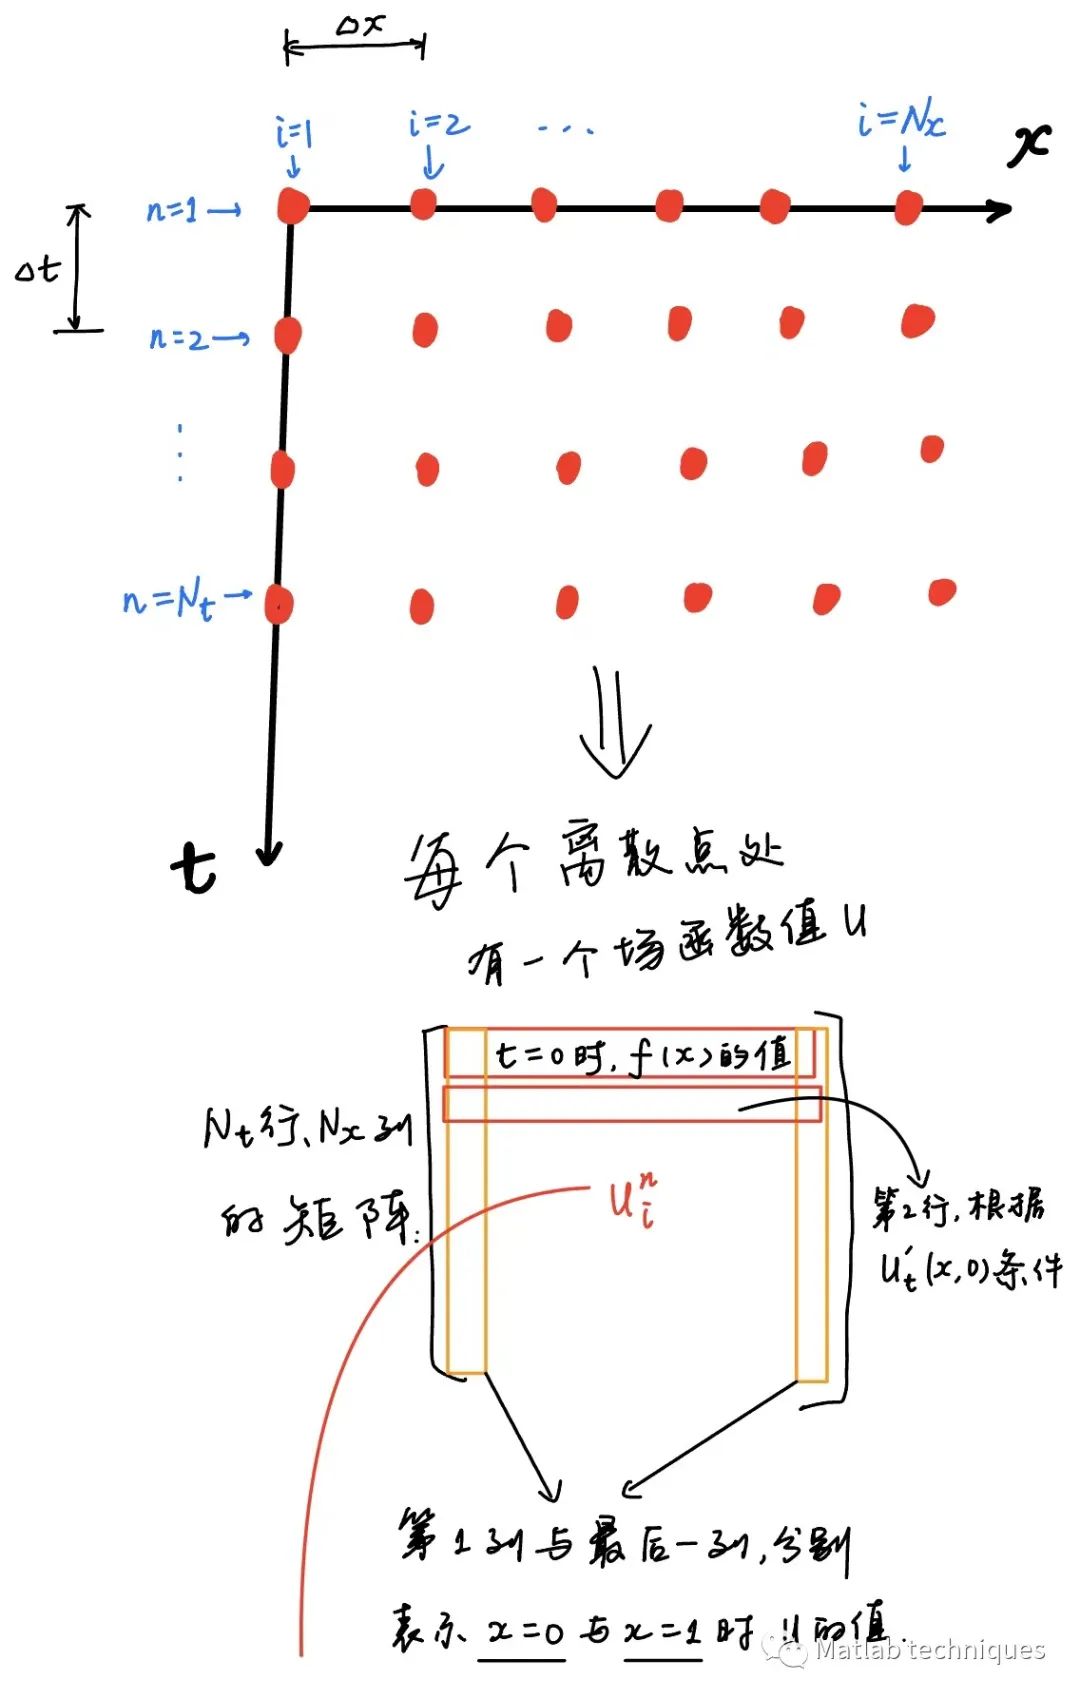 Δx
i=1 i=2 ... i=Nx x
n=1→
Δt
n=2→
⋮
n=Nt→
t
每个离散点处
有一个场函数值u
t=0时,f(x)的值
Nt行、Nx列
的矩阵:
u_i^n
第2行,根据
u't(x,0)条件
第1列与最后一列,分别
表示x=0与x=1时u的值.
Matlab techniques